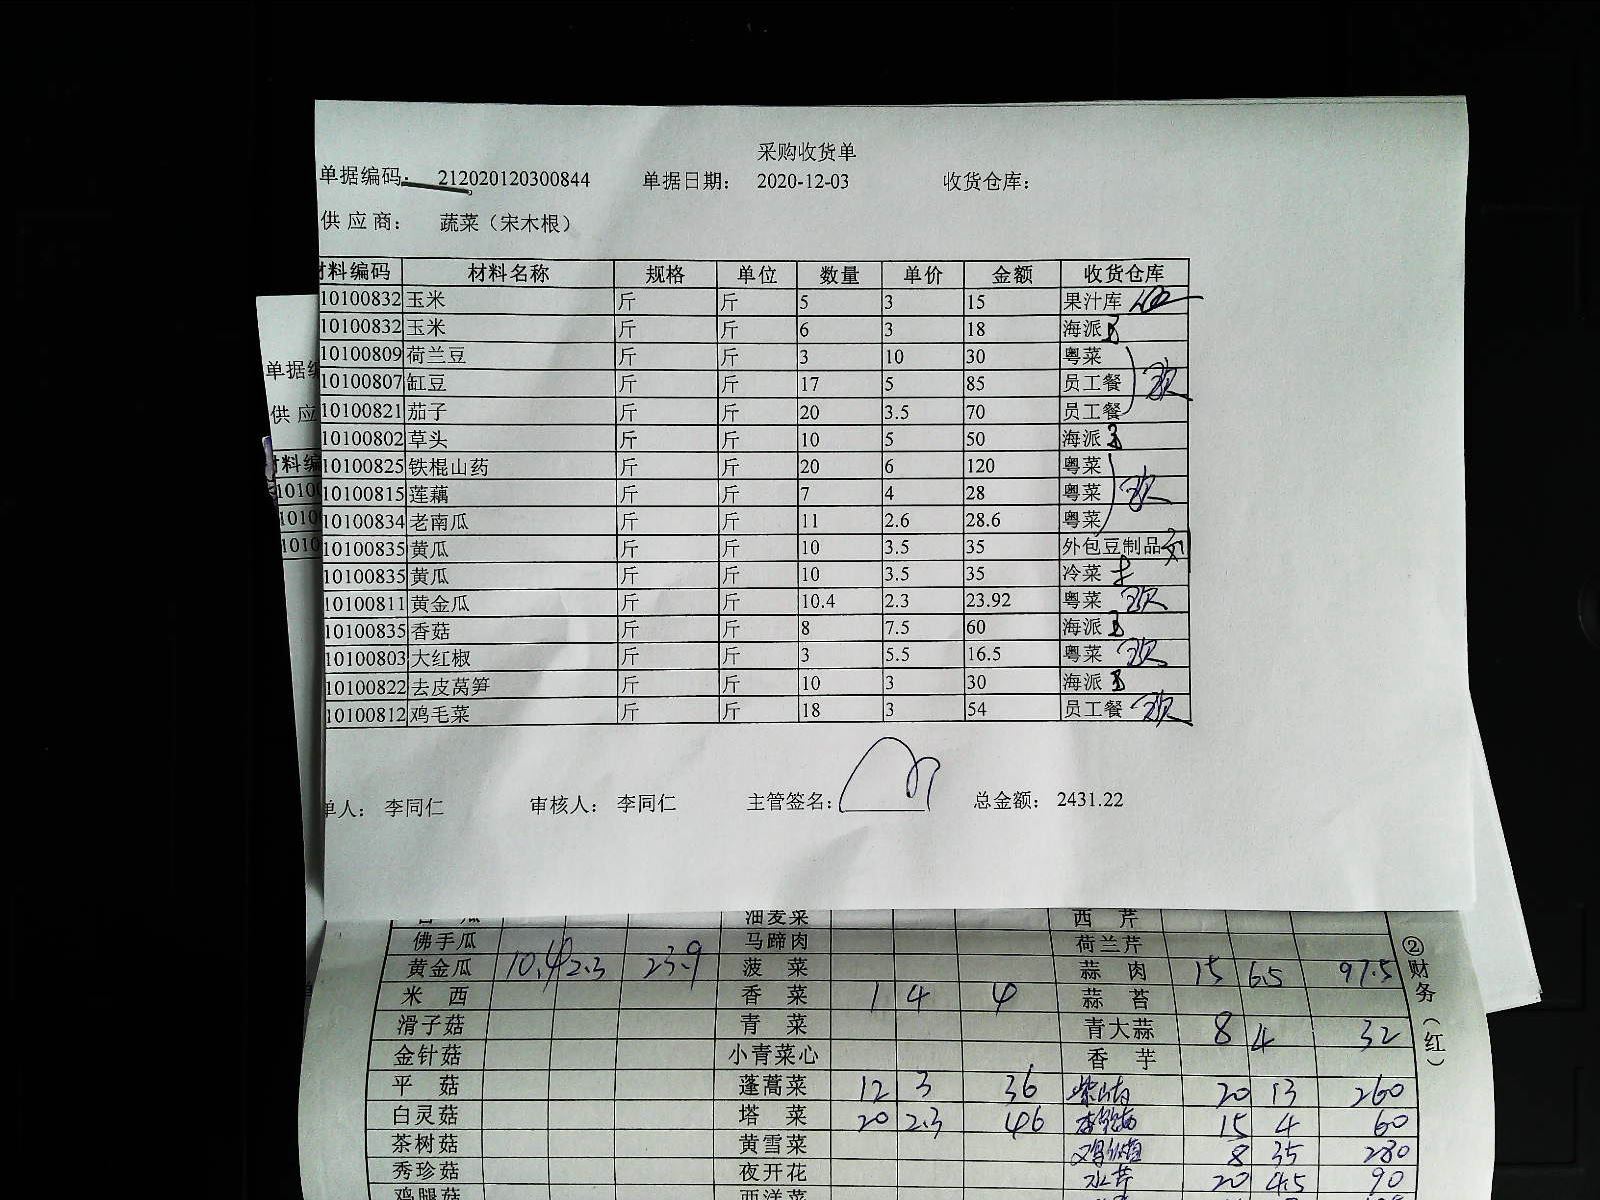 采购收货单
单据编码： 212020120300844 单据日期： 2020-12-03 收货仓库：
供 应 商： 蔬菜（宋木根）
材料编码 材料名称 规格 单位 数量 单价 金额 收货仓库
10100832 玉米 斤 斤 5 3 15 果汁库
10100832 玉米 斤 斤 6 3 18 海派
10100809 荷兰豆 斤 斤 3 10 30 粤菜
10100807 缸豆 斤 斤 17 5 85 员工餐
10100821 茄子 斤 斤 20 3.5 70 员工餐
10100802 草头 斤 斤 10 5 50 海派
10100825 铁棍山药 斤 斤 20 6 120 粤菜
10100815 莲藕 斤 斤 7 4 28 粤菜
10100834 老南瓜 斤 斤 11 2.6 28.6 粤菜
10100835 黄瓜 斤 斤 10 3.5 35 外包豆制品
10100835 黄瓜 斤 斤 10 3.5 35 冷菜
10100811 黄金瓜 斤 斤 10.4 2.3 23.92 粤菜
10100835 香菇 斤 斤 8 7.5 60 海派
10100803 大红椒 斤 斤 3 5.5 16.5 粤菜
10100822 去皮莴笋 斤 斤 10 3 30 海派
10100812 鸡毛菜 斤 斤 18 3 54 员工餐
单人： 李同仁 审核人： 李同仁 主管签名： 总金额： 2431.22
单据编
供 应
材料编
1010
1010
1010
油麦菜 西 芹
佛手瓜 马蹄肉 荷兰芹
黄金瓜 10.4 2.3 23.9 菠 菜 蒜 肉 15 6.5 97.5
米 西 香 菜 1 4 4 蒜 苔
滑子菇 青 菜 青大蒜 8 4 32
金针菇 小青菜心 香 芋
平 菇 蓬蒿菜 12 3 36 20 13 260
白灵菇 塔 菜 20 2.3 46 15 4 60
茶树菇 黄雪菜 8 35 280
秀珍菇 夜开花 水芹 20 4.5 90
鸡腿菇 西洋菜
②财务（红）